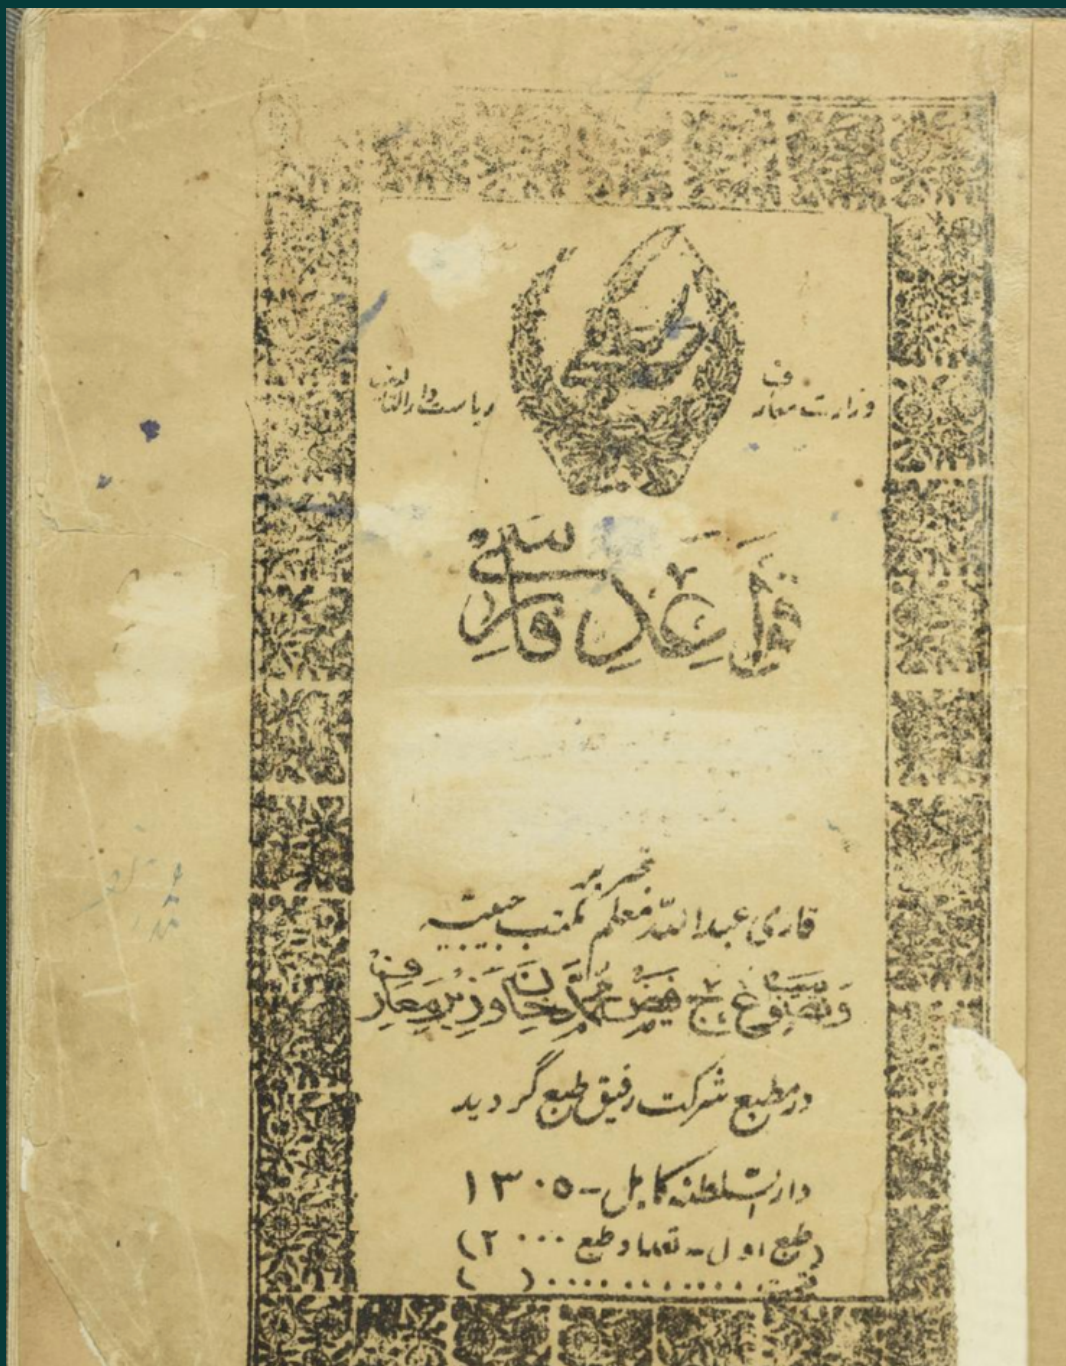 وزارت معارف
ریاست دارالتالیف
قواعد فارسی
تحریر
قاری عبدالله معلم مکتب حبیبیه
فیض محمد خان وزیر معارف
در مطبع شرکت رفیق طبع گردید
دارالسلطنه کابل - ۱۳۰۵
(طبع اول - تعداد طبع ۲۰۰۰)
قیمت ............ ( )